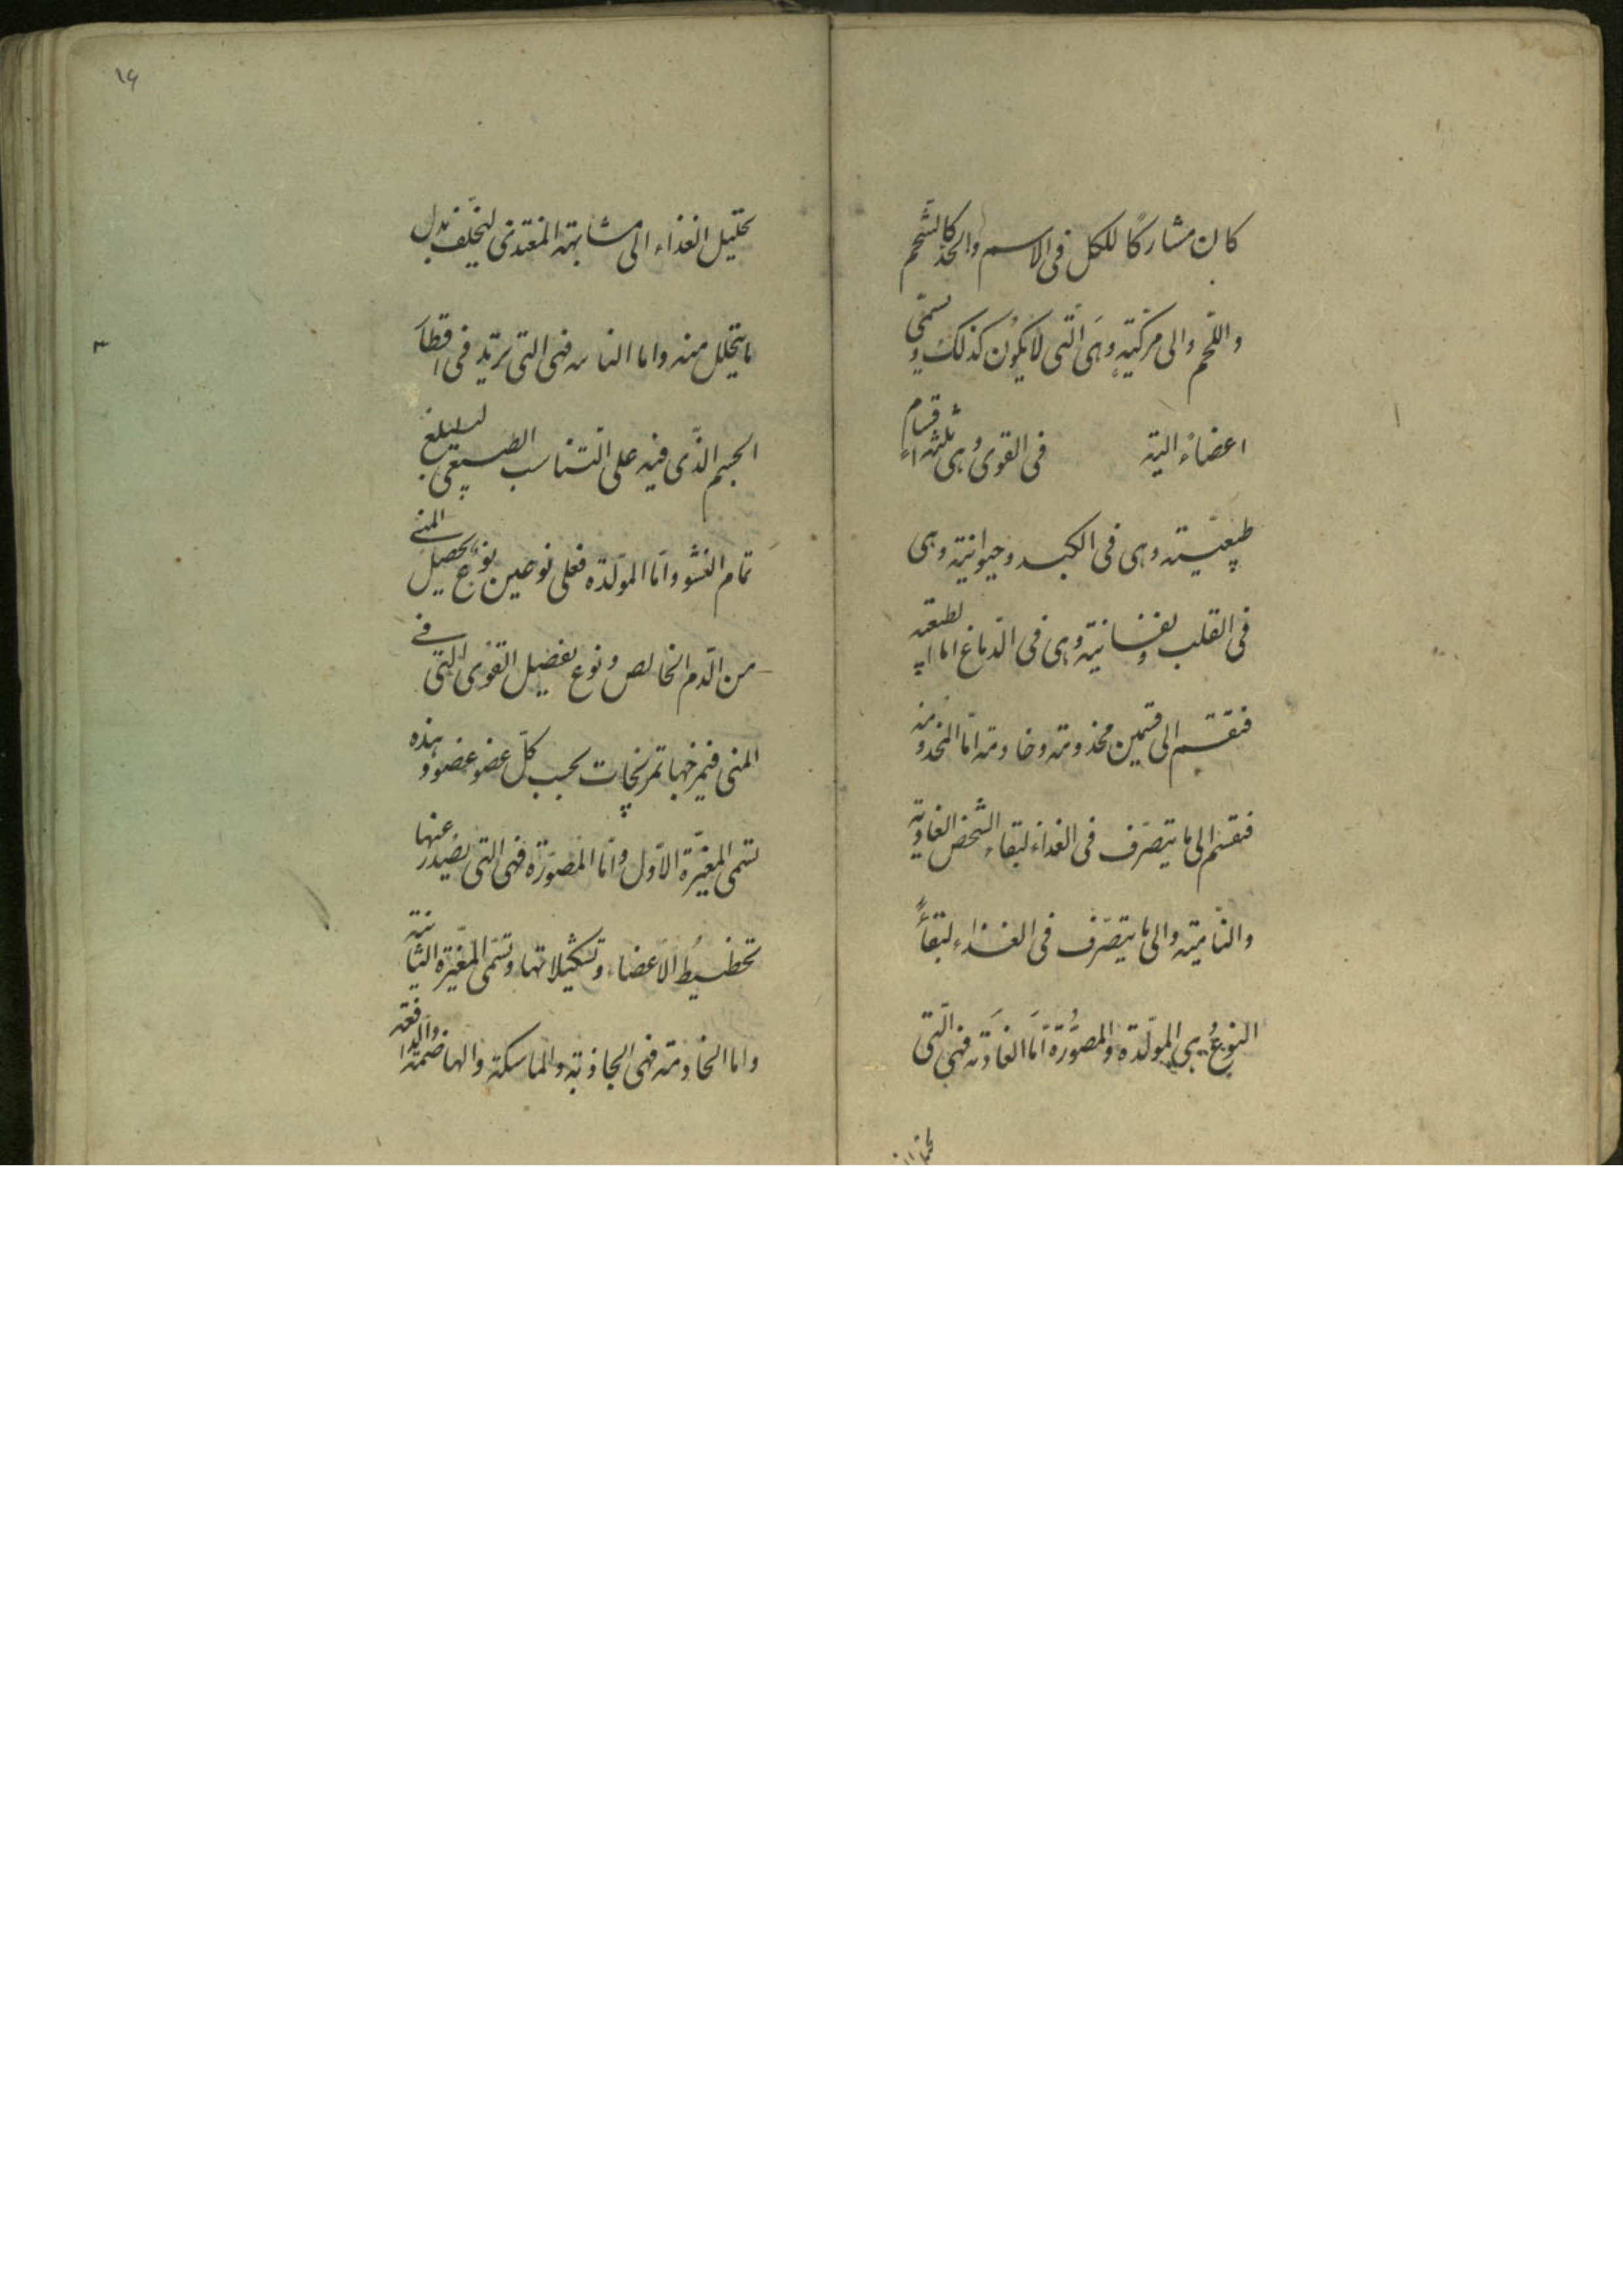 كان مشاركًا للكل فى الاسم والحد كالشحم
واللحم والى مركبة وهى التى لا يكون كذلك وتسمى
اعضاء الية فى القوى وهى ثلثة اقسام
طبيعية وهى فى الكبد وحيوانية وهى
فى القلب ونفسانية وهى فى الدماغ اما الطبيعية
فتقسم الى قسمين مخدومة وخادمة امّا المخدومة
فتقسم الى ما يتصرف فى الغذاء لبقاء الشخص الغاذية
والنّامية والى ما يتصرف فى الغذاء لبقاء
النوع وهى المولّدة والمصوّرة امّا الغاذية فهى التى
تحيل الغذاء الى مشابهة المغتذى ليخلف بدل
ما يتحلل منه واما النامية فهى التى تزيد فى اقطار
الجسم الذّى فيه على التناسب الطبيعى ليبلغ
تمام النشو وامّا المولّدة فعلى نوعين نوع يحصيل المنى
من الدّم الخالص ونوع يفصيل القوى التى فى
المنى فيمزجها تمزيجات بحسب كلّ عضو عضو وهذه
تسمى المغيّرة الاوّل وامّا المصوّرة فهى التى يصدر عنها
تخطيط الاعضاء وتشكيلاتها وتسمّى المغيّرة الثانية
واما الخادمة فهى الجاذبة والماسكة والهاضمة والدافعة